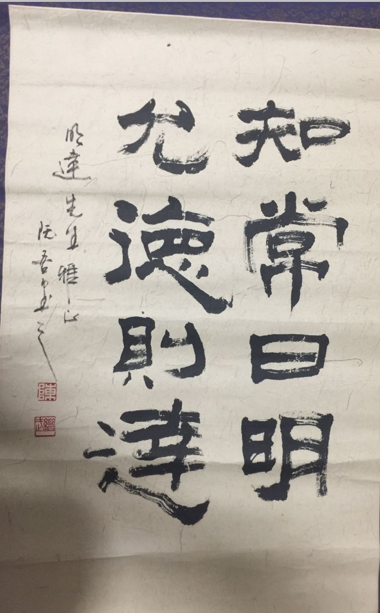 知常曰明
允德則達
明達先生雅正
吾書